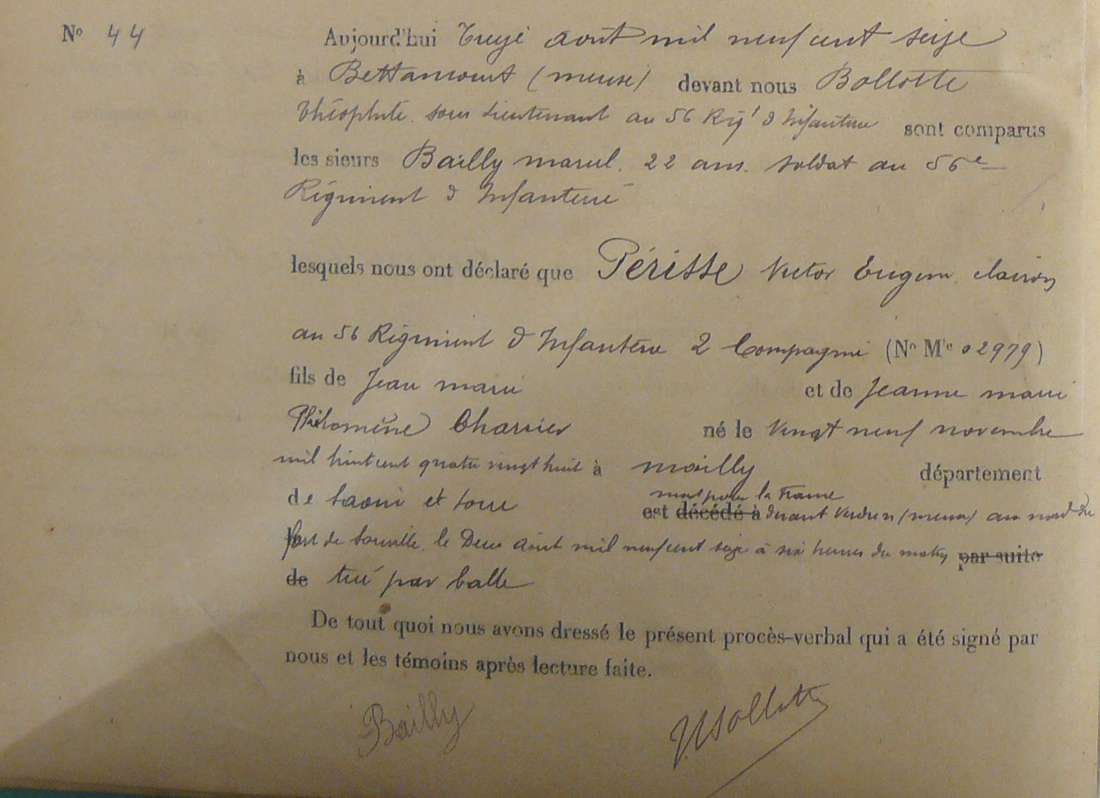 N° 44
Aujourd'hui Treize aout mil neuf cent seize
à Bettancourt (meuse) devant nous Bollotte
théophile. sous Lieutenant au 56 Rig^t d Infanterie sont comparus
les sieurs Bailly marcel. 22 ans. soldat au 56e
Régiment d Infanterie
lesquels nous ont déclaré que Périsse Victor Eugène clairon
au 56 Régiment d Infanterie 2 Compagnie (N° Mle 02979)
fils de Jean marie et de Jeanne marie
Philomène Charrier né le vingt neuf novembre
mil huit cent quatre vingt huit à mailly département
de Saone et Loire mort pour la France
est décédé à devant Verdun (meuse) au nord du
fort de Souville. le Deux aout mil neuf cent seize à six heures du matin par suite
de tué par balle
De tout quoi nous avons dressé le présent procès-verbal qui a été signé par
nous et les témoins après lecture faite.
Bailly Bollotte